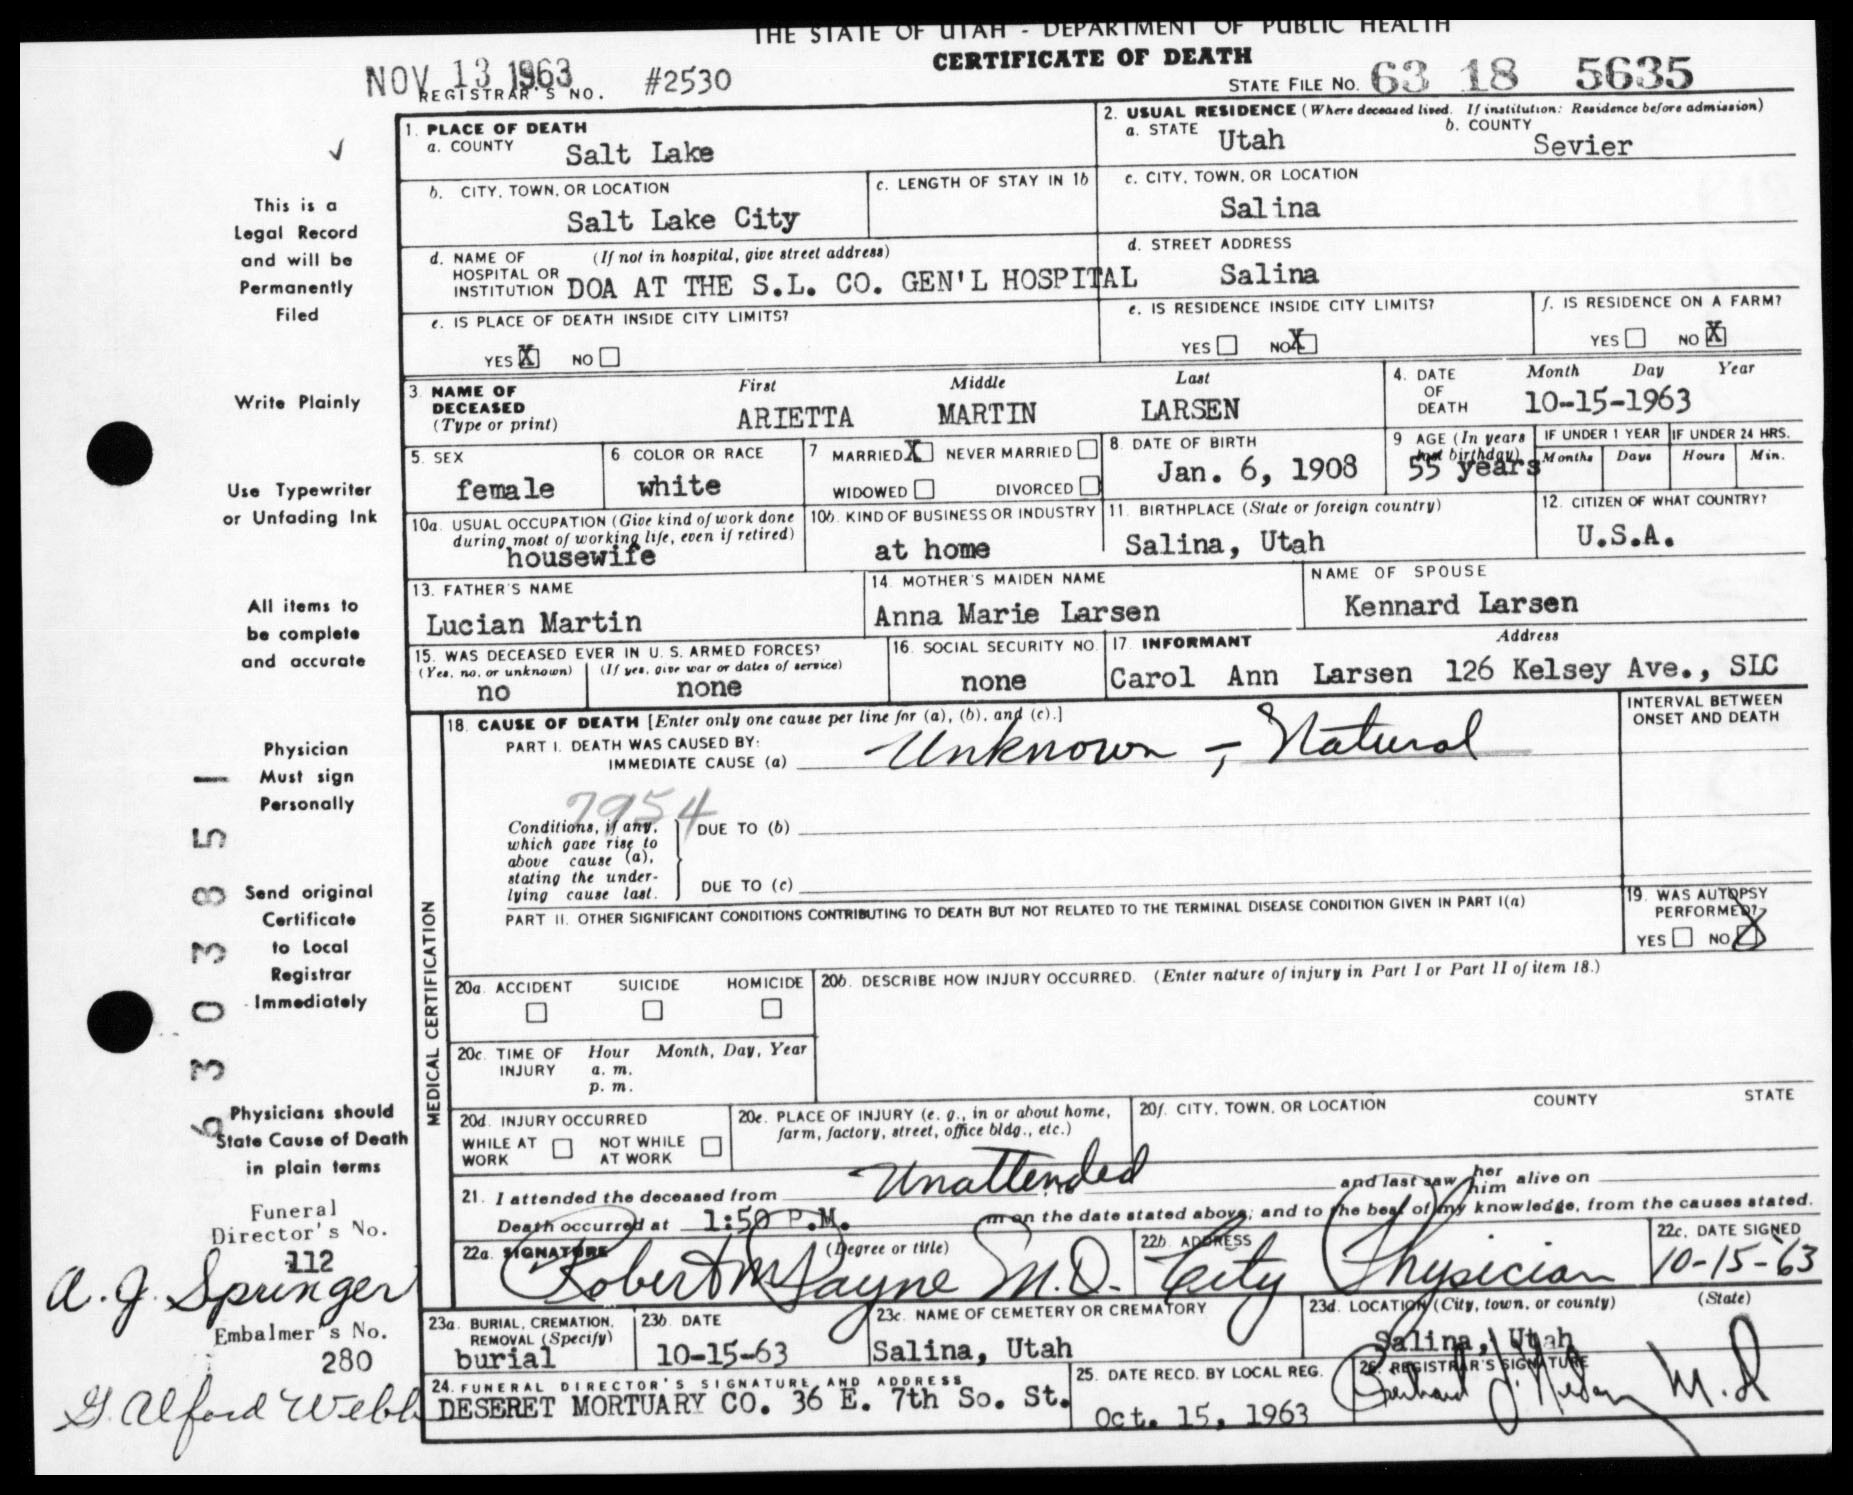 THE STATE OF UTAH - DEPARTMENT OF PUBLIC HEALTH
CERTIFICATE OF DEATH
NOV 13 1963
REGISTRAR'S NO. #2530
STATE FILE NO. 63 18 5635
1. PLACE OF DEATH
a. COUNTY Salt Lake
2. USUAL RESIDENCE (Where deceased lived. If institution: Residence before admission)
a. STATE Utah
b. COUNTY Sevier
b. CITY, TOWN, OR LOCATION
Salt Lake City
c. LENGTH OF STAY IN 1b
c. CITY, TOWN, OR LOCATION
Salina
d. NAME OF HOSPITAL OR INSTITUTION (If not in hospital, give street address)
DOA AT THE S.L. CO. GEN'L HOSPITAL
d. STREET ADDRESS
Salina
e. IS PLACE OF DEATH INSIDE CITY LIMITS?
YES X NO
e. IS RESIDENCE INSIDE CITY LIMITS?
YES NO X
f. IS RESIDENCE ON A FARM?
YES NO X
3. NAME OF DECEASED (Type or print)
First Middle Last
ARIETTA MARTIN LARSEN
4. DATE OF DEATH
Month Day Year
10-15-1963
5. SEX
female
6 COLOR OR RACE
white
7 MARRIED X NEVER MARRIED
WIDOWED DIVORCED
8. DATE OF BIRTH
Jan. 6, 1908
9 AGE (In years last birthday)
55 years
IF UNDER 1 YEAR
Months Days
IF UNDER 24 HRS.
Hours Min.
10a. USUAL OCCUPATION (Give kind of work done during most of working life, even if retired)
housewife
10b. KIND OF BUSINESS OR INDUSTRY
at home
11. BIRTHPLACE (State or foreign country)
Salina, Utah
12. CITIZEN OF WHAT COUNTRY?
U.S.A.
13. FATHER'S NAME
Lucian Martin
14. MOTHER'S MAIDEN NAME
Anna Marie Larsen
NAME OF SPOUSE
Kennard Larsen
15. WAS DECEASED EVER IN U. S. ARMED FORCES?
(Yes, no, or unknown) (If yes, give war or dates of service)
no none
16. SOCIAL SECURITY NO.
none
17. INFORMANT Address
Carol Ann Larsen 126 Kelsey Ave., SLC
MEDICAL CERTIFICATION
18. CAUSE OF DEATH [Enter only one cause per line for (a), (b), and (c).]
PART I. DEATH WAS CAUSED BY:
IMMEDIATE CAUSE (a) Unknown - Natural
INTERVAL BETWEEN ONSET AND DEATH
7954
Conditions, if any, which gave rise to above cause (a), stating the underlying cause last.
DUE TO (b)
DUE TO (c)
PART II. OTHER SIGNIFICANT CONDITIONS CONTRIBUTING TO DEATH BUT NOT RELATED TO THE TERMINAL DISEASE CONDITION GIVEN IN PART I(a)
19. WAS AUTOPSY PERFORMED?
YES NO X
20a. ACCIDENT SUICIDE HOMICIDE
20b. DESCRIBE HOW INJURY OCCURRED. (Enter nature of injury in Part I or Part II of item 18.)
20c. TIME OF INJURY
Hour Month, Day, Year
a. m.
p. m.
20d. INJURY OCCURRED
WHILE AT WORK NOT WHILE AT WORK
20e. PLACE OF INJURY (e. g., in or about home, farm, factory, street, office bldg., etc.)
20f. CITY, TOWN, OR LOCATION COUNTY STATE
21. I attended the deceased from Unattended and last saw her him alive on
Death occurred at 1:50 P.M. m on the date stated above; and to the best of my knowledge, from the causes stated.
22a. SIGNATURE (Degree or title)
Robert M Payne M.D.
22b. ADDRESS
City Physician
22c. DATE SIGNED
10-15-63
23a. BURIAL, CREMATION, REMOVAL (Specify)
burial
23b. DATE
10-15-63
23c. NAME OF CEMETERY OR CREMATORY
Salina, Utah
23d. LOCATION (City, town, or county) (State)
Salina, Utah
24. FUNERAL DIRECTOR'S SIGNATURE AND ADDRESS
DESERET MORTUARY CO. 36 E. 7th So. St.
25. DATE RECD. BY LOCAL REG.
Oct. 15, 1963
26. REGISTRAR'S SIGNATURE
M.D
This is a
Legal Record
and will be
Permanently
Filed
Write Plainly
Use Typewriter
or Unfading Ink
All items to
be complete
and accurate
Physician
Must sign
Personally
Send original
Certificate
to Local
Registrar
Immediately
Physicians should
State Cause of Death
in plain terms
6303851
Funeral
Director's No.
112
A. J. Springer
Embalmer's No.
280
G. Alford Webb